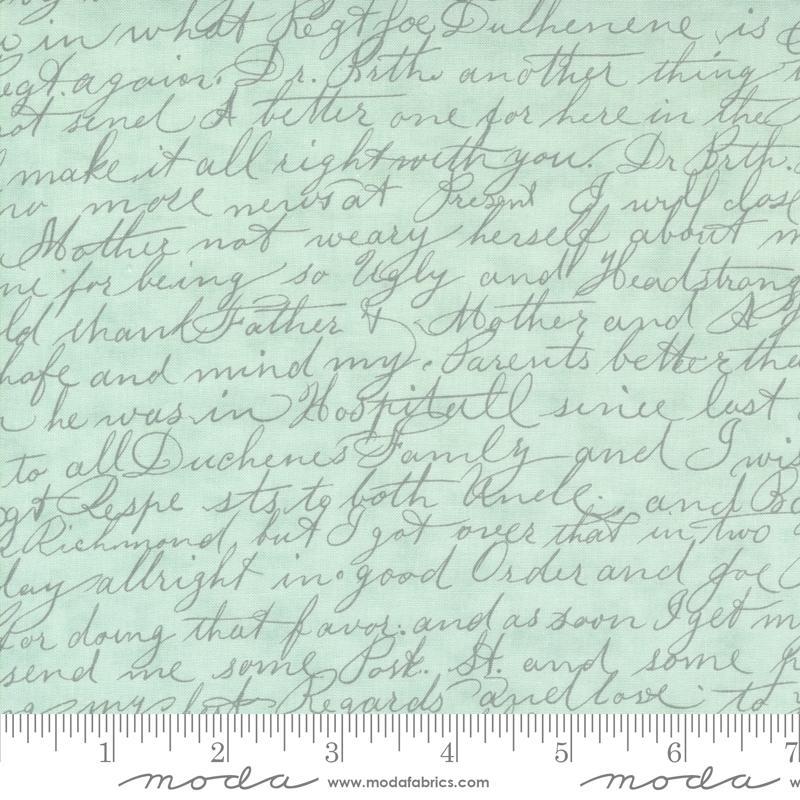 in what Regt Joe Duchenene is
Regt. again. Dr. Brth. another thing
not send A better one for here in the
make it all right with you. Dr Brth.
no more news at Present I will close
Mother not weary herself about m
me for being so Ugly and Headstrong
ld thank Father & Mother and A
hafe and mind my. Parents better tha
he was in Hospitall since last
to all Duchenes Family and I wis
gt Respe sts to both Uncle. and Bo
Richmond, but I got over that in two
day allright in good Order and Joe
for doing that favor. and as soon I get m
send me some Post. St. and some p
my best Regards and love to
1 2 3 4 5 6 7
moda www.modafabrics.com moda w